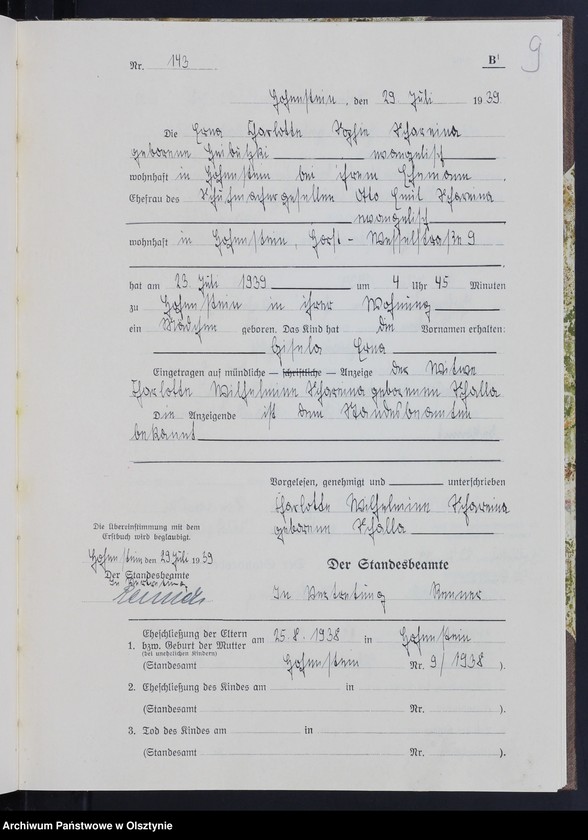 9
Nr. 143 B¹
Hohenstein, den 29. Juli 1939.
Die Erna Charlotte Sophie Schareina
geborene evangelisch
wohnhaft in Hohenstein bei ihrem Ehemann.
Ehefrau des Schuhmachergesellen Otto Emil Schareina
evangelisch
wohnhaft in Hohenstein, Horst-Wesselstraße 9
hat am 23. Juli 1939 um 4 Uhr 45 Minuten
zu Hohenstein in ihrer Wohnung
ein Mädchen geboren. Das Kind hat die Vornamen erhalten:
Gisela Erna
Eingetragen auf mündliche – schriftliche – Anzeige der Witwe
Charlotte Wilhelmine Schareina geborenen Schalla
Die Anzeigende ist dem Standesbeamten
bekannt
Vorgelesen, genehmigt und unterschrieben
Charlotte Wilhelmine Schareina
geborene Schalla
Die Übereinstimmung mit dem
Erstbuch wird beglaubigt.
Hohenstein, den 29. Juli 1939
Der Standesbeamte
In Vertretung
Der Standesbeamte
In Vertretung Renner
1. Eheschließung der Eltern
bzw. Geburt der Mutter am 25.8.1938 in Hohenstein
(bei unehelichen Kindern)
(Standesamt Hohenstein Nr. 9/1938 ).
2. Eheschließung des Kindes am in
(Standesamt Nr. ).
3. Tod des Kindes am in
(Standesamt Nr. ).
Archiwum Państwowe w Olsztynie